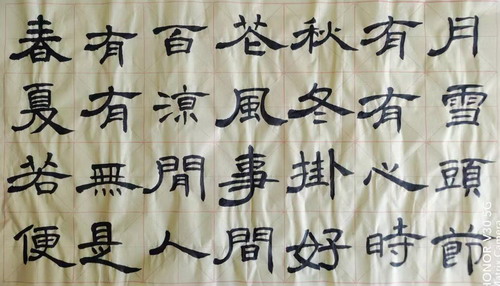 春有百花秋有月
夏有凉風冬有雪
若無閒事掛心頭
便是人間好時節
HONOR V30 5G